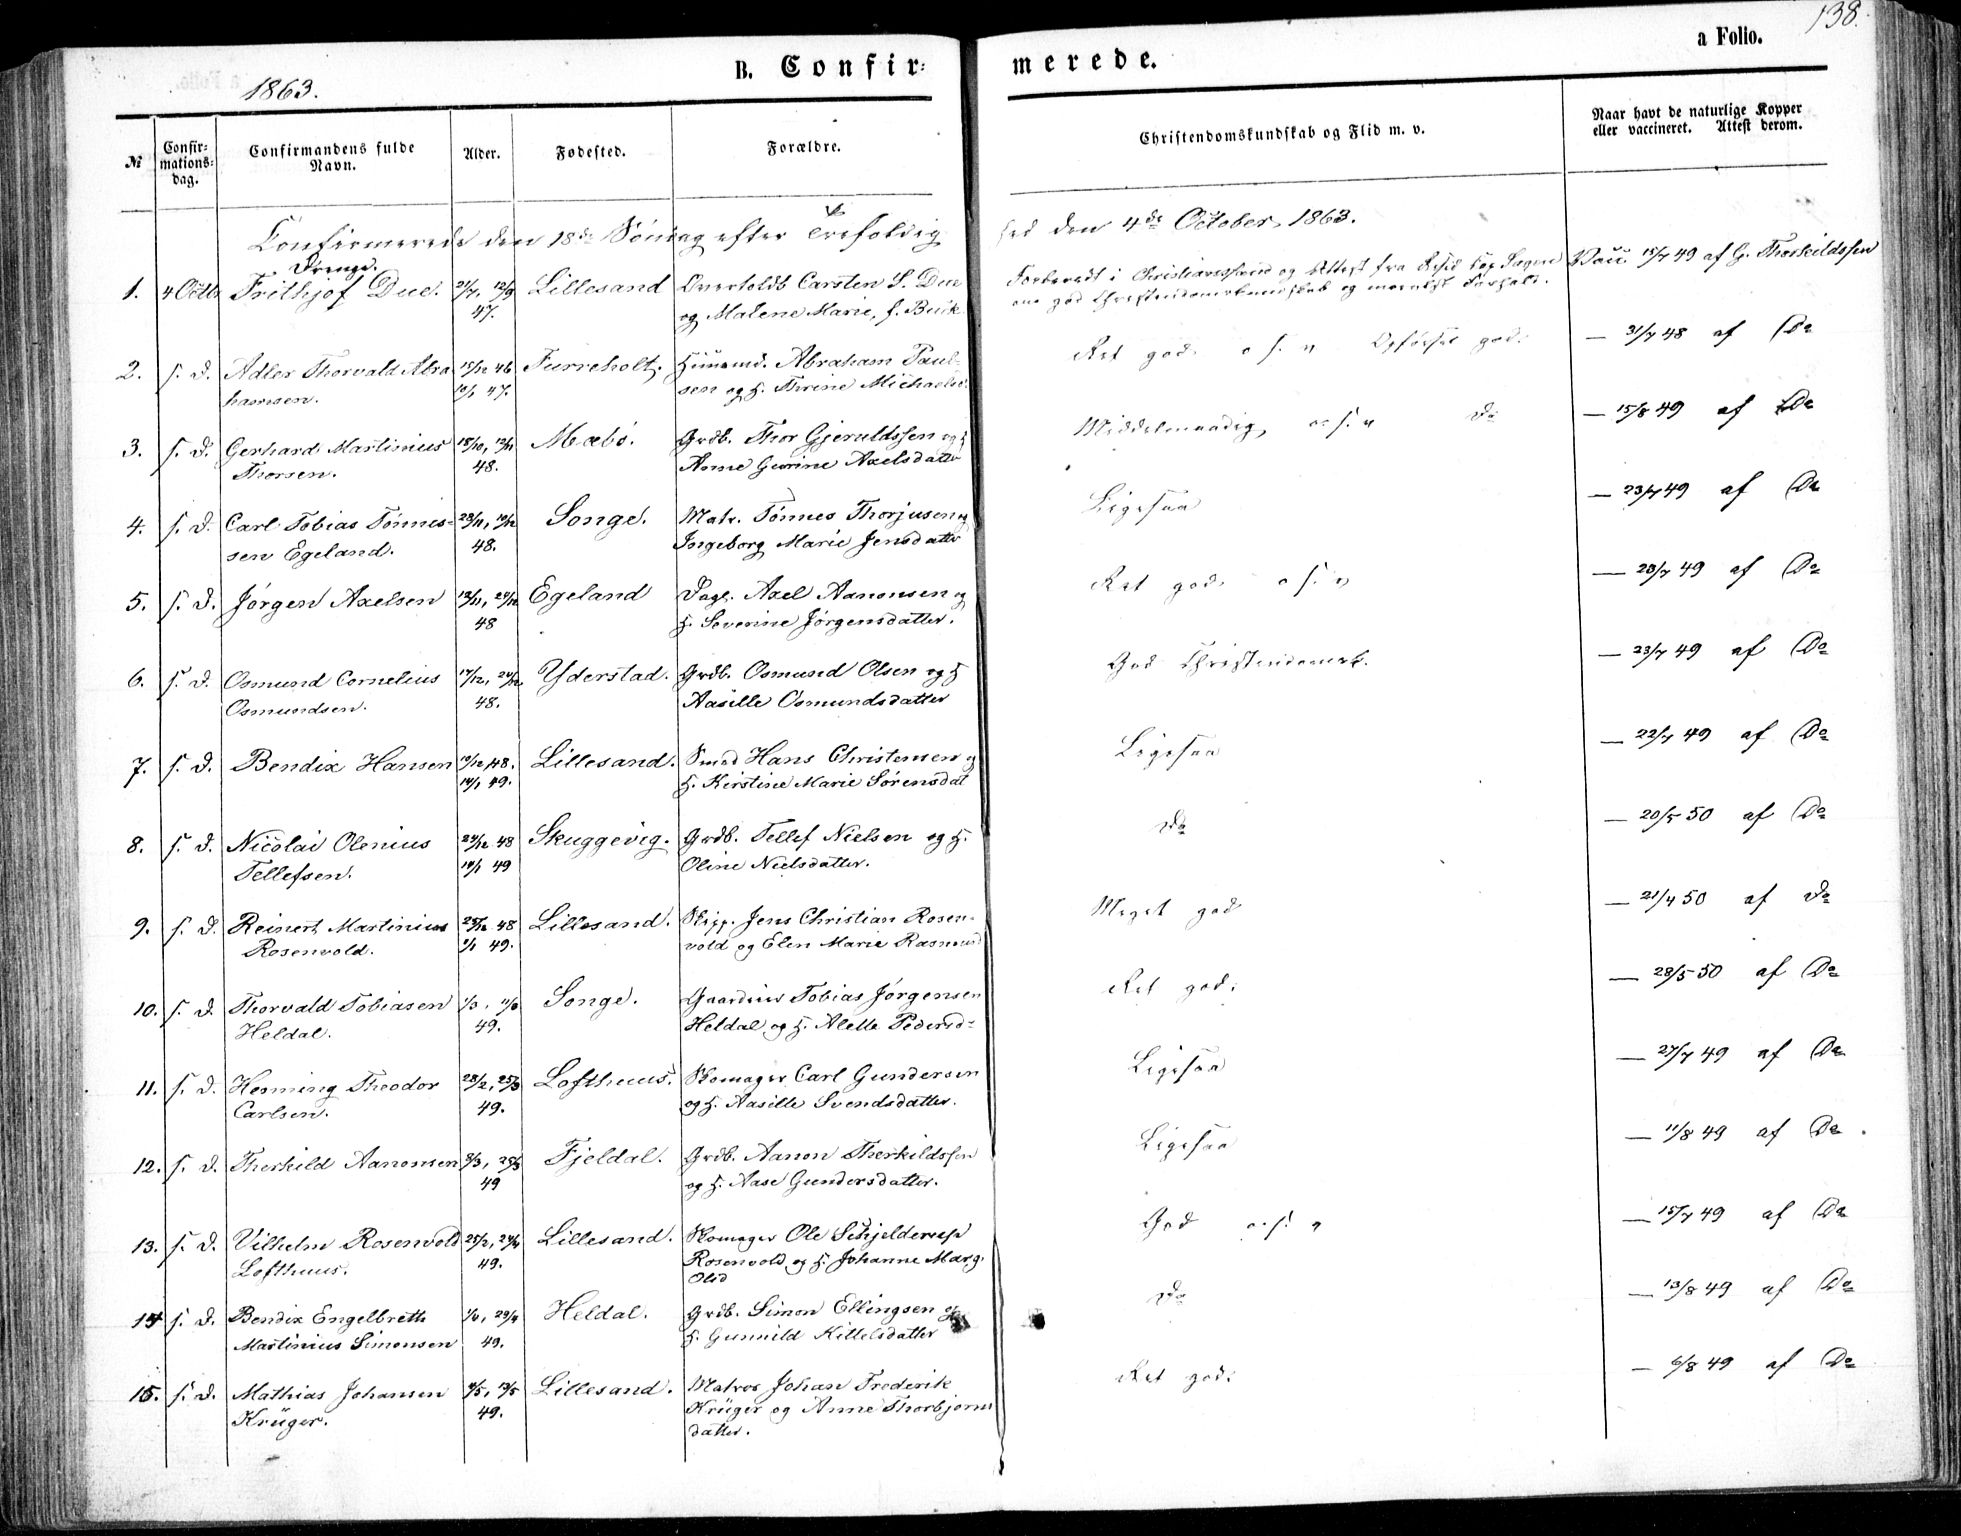 138.
a Folio.
B. Confir= merede.
1863.
№ Confir-mations-dag. Confirmandens fulde Navn. Alder. Fødested. Forældre. Christendomskundskab og Flid m. v. Naar havt de naturlige Kopper eller vaccineret. Attest derom.
Confirmerede den 18de Søndag efter Trefoldig hed den 4de October 1863.
Drenge.
1. 4 Octb Frithjof Due. Lillesand Overtoldb Carsten S. Due Forberedt i Christianssand og Attest fra Vacc 15/7 49 af G. Thorkildssen
47. og Malene Marie, f. om god Christendomskundskab og moralsk Forhold.
2. s. D. Adler Thorvald Abra 15/12 46 Furreholt. Huusmd. Abraham Paul- Ret god o s. v Opførsel god. — 31/7 48 af Do
hamsen. 47. sen og H. Thrine Michaelsd.
3. s. D. Gerhard Martinius 18/10, 12/11 Mæbø. Grdb. Thor Gjeruldssen og H Middelmaadig o s. v Do — 15/8 49 af Do
Thorsen. 48. Anne Gurine Axelsdatter
4. s. D. Carl Tobias Tønnes- 23/11, Songe. Matr. Tønnes Thorjusen og Ligesaa — 23/7 49 af Do
sen Egeland. 48. Ingeborg Marie Jensdatter
5. s. D. Jørgen Axelsen 13/11, 24/12 Egeland Dagl. Axel Aanonsen og Ret god o s. v — 23/7 49 af Do
48 H. Severine Jørgensdatter.
6. s. D. Osmund Cornelius 17/12, 24/12 Yderstad. Grdb. Osmund Olsen og H God Christendomsk. — 23/7 49 af Do
Osmundsen. 48. Aasille Osmundsdatter
7. s. D. Bendix Hansen 48. Lillesand. Smed Hans Christensen og Ligesaa — 22/7 49 af Do
14/1 49. H. Kirstine Marie Sørensdat
8. s. D. Nicolai Olenius 24/12 48 Skuggevig. Grdb. Tellef Nielsen og H. Do — 20/5 50 af Do
Tellefsen. 14/1 49 Oline Nielsdatter.
9. s. D. Reinert Martinius 25/12 48 Lillesand. Skipp. Jens Christian Rosen- Meget god — 21/4 50 af Do
Rosenvold. 49. vold og Elen Marie Rasmusd
10. s. D. Thorvald Tobiasen 1/3, 11/3 Songe. Gaardmd Tobias Jørgensen Ret god. — 28/5 50 af Do
Heldal. 49. Heldal og H. Alette Pedersd-
11. s. D. Henning Theodor 28/2, 25/3 Lofthuus. Skomager Carl Gundersen Ligesaa — 27/7 49 af Do
Carlsen. 49. og H. Aasille Svendsdatter.
12. s. D. Therkild Aanonsen 8/3, 25/3 Fjeldal. Grdb. Aanon Therkildssen Ligesaa — 11/8 49 af Do
49 og H. Aase Gundersdatter.
13. s. D. Vilhelm Rosenvold 25/2, 24/4 Lillesand. Skomager Ole Schjelderup God o. s. v — 15/7 49 af Do
Lofthuus. 49. Rosenvold og H. Johanne Marg.
Olsd
14 s. D. Bendix Engelbreth 29/4 Heldal. Grdb. Simon Ellingsen og Do — 13/8 49 af Do
Martinius Simonsen 49. H. Gunnild Kittelsdatter
15. s. D. Mathias Johansen 13/5 Lillesand. Matros Johan Frederik Ret god. — 6/8 49 af Do
Krüger. 49. Krüger og Anne Thorbjørns
datter.